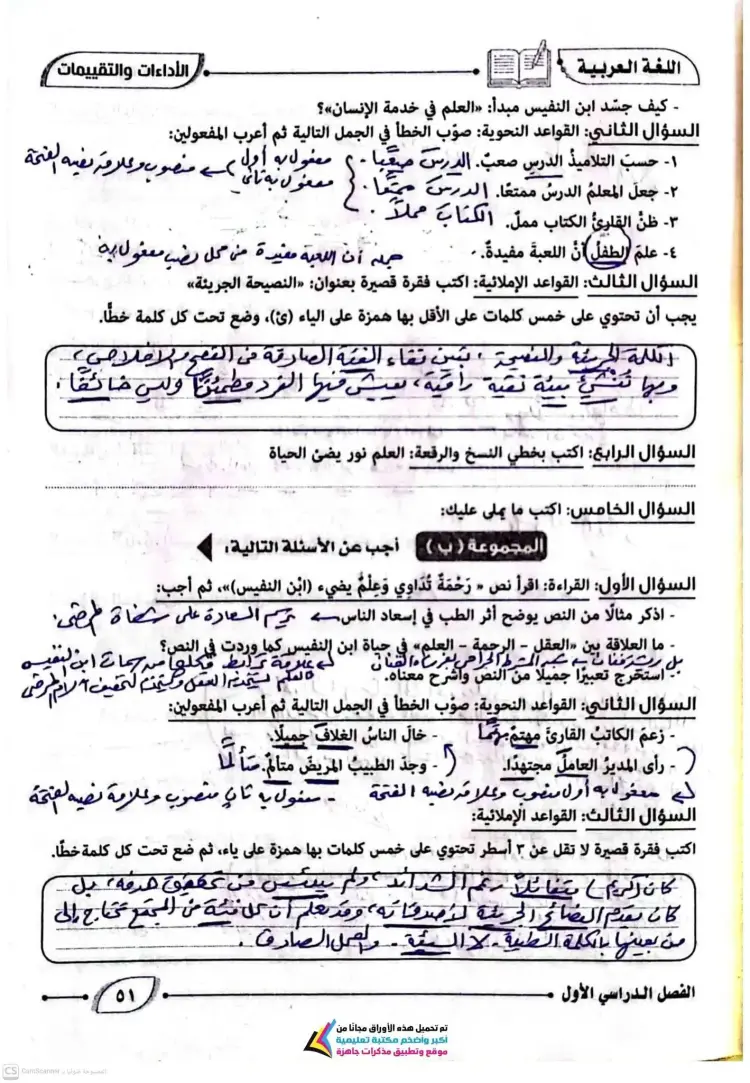 اللغة العربية
الأداءات والتقييمات
- كيف جسّد ابن النفيس مبدأ: «العلم في خدمة الإنسان»؟
السؤال الثاني: القواعد النحوية: صوّب الخطأ في الجمل التالية ثم أعرب المفعولين:
١- حسبَ التلاميذُ الدرسِ صعبٌ. الدرسَ صعبًا. مفعول به أول منصوب وعلامة نصبه الفتحة
مفعول به ثاني
٢- جعلَ المعلمُ الدرسُ ممتعًا. الدرسَ ممتعًا.
٣- ظنَّ القارئُ الكتاب مملٌ. الكتابَ مملاً.
٤- علمَ الطفلُ أنَّ اللعبةَ مفيدةٌ. جملة أن اللعبة مفيدة في محل نصب مفعول به
السؤال الثالث: القواعد الإملائية: اكتب فقرة قصيرة بعنوان: «النصيحة الجريئة»
يجب أن تحتوي على خمس كلمات على الأقل بها همزة على الياء (ئ)، وضع تحت كل كلمة خطًا.
الكلمة الجريئة والنصيحة، تبين نقاء الفئة الصادقة في النصح والإخلاص،
وبها تُنشئ بيئة نقية راقية، يعيش فيها الفرد مطمئنًا وليس خائفًا.
السؤال الرابع: اكتب بخطي النسخ والرقعة: العلم نور يضئ الحياة
السؤال الخامس: اكتب ما يملى عليك:
المجموعة (ب) أجب عن الأسئلة التالية:
السؤال الأول: القراءة: اقرأ نص « رَحْمَةٌ تُدَاوِي وَعِلْمٌ يضيء (ابْن النفيس)»، ثم أجب:
- اذكر مثالًا من النص يوضح أثر الطب في إسعاد الناس. رسم السعادة على شفاه المرضى.
- ما العلاقة بين «العقل - الرحمة - العلم» في حياة ابن النفيس كما وردت في النص؟
علاقة ترابط فكلها من سمات ابن النفيس
- استخرج تعبيرًا جميلًا من النص واشرح معناه.
السؤال الثاني: القواعد النحوية: صوّب الخطأ في الجمل التالية ثم أعرب المفعولين:
- زعمَ الكاتبُ القارئَ مهتمٌ. مهتمًا - خالَ الناسُ الغلافَ جميلًا.
- رأى المديرُ العاملَ مجتهدًا. - وجدَ الطبيبُ المريضَ متألمٌ. متألمًا
مفعول به أول منصوب وعلامة نصبه الفتحة - مفعول به ثانٍ منصوب وعلامة نصبه الفتحة
السؤال الثالث: القواعد الإملائية:
اكتب فقرة قصيرة لا تقل عن ٣ أسطر تحتوي على خمس كلمات بها همزة على ياء، ثم ضع تحت كل كلمة خطًا.
كان متفائلاً رغم الشدائد، ولم ييئس في تحقيق هدفه، بل
كان يقدم النصائح الجريئة لأصدقائه، وقد تعلم أن كل فئة في المجتمع تحتاج إلى
من يعينها بالكلمة الطيبة - لا السيئة - والعمل الصادق.
الفصل الدراسي الأول
٥١
تم تحميل هذه الأوراق مجانًا من
أكبر وأضخم مكتبة تعليمية
موقع وتطبيق مذكرات جاهزة
CS CamScanner